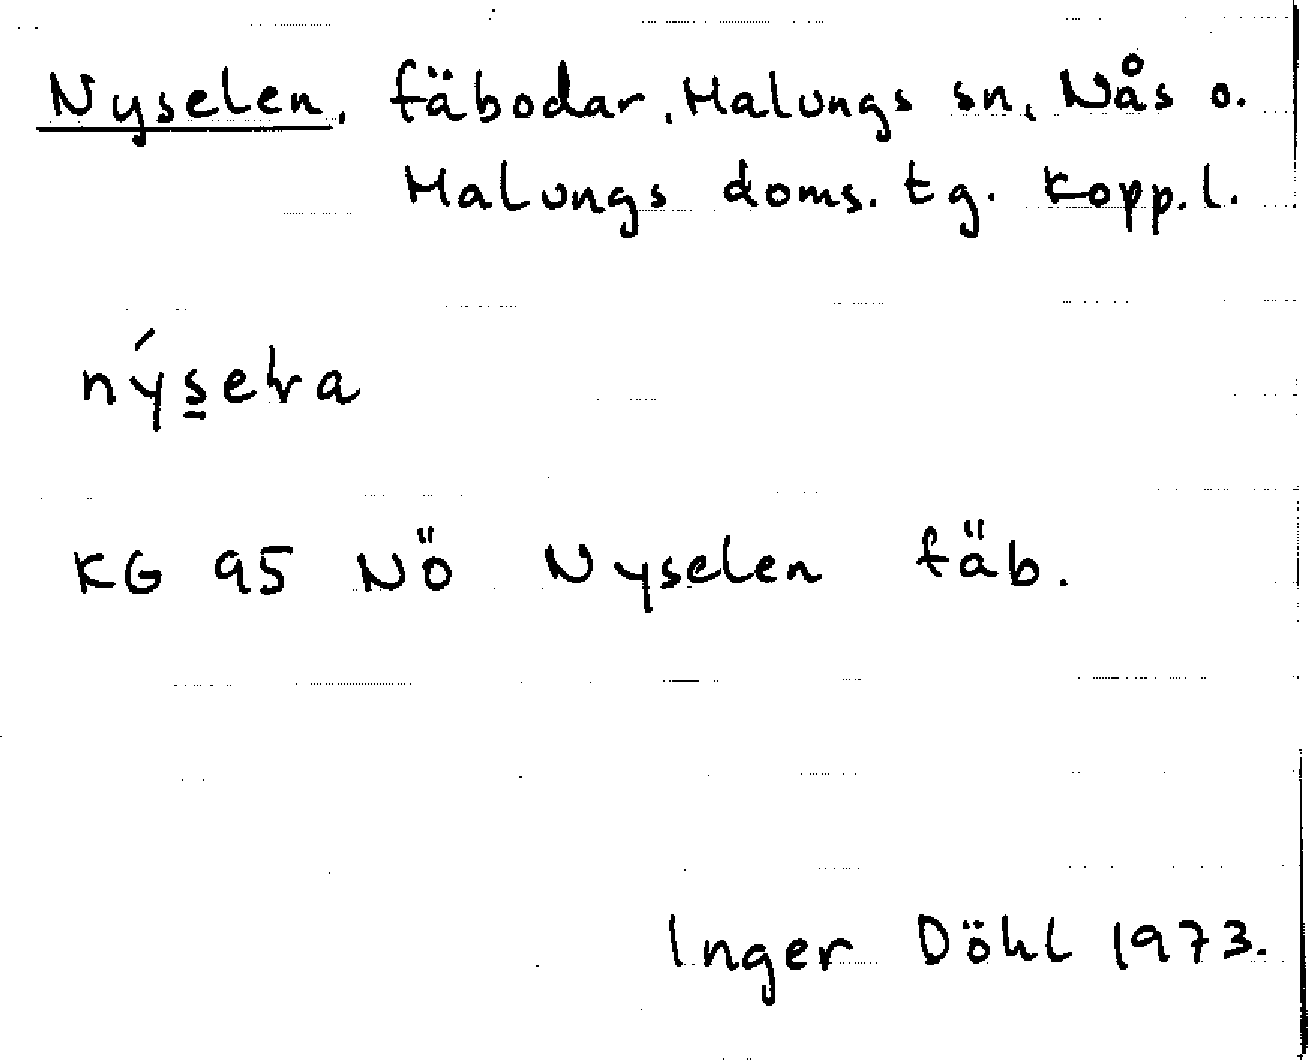 Nyselen, fäbodar, Malungs sn, Nås o.
Malungs doms. tg. Kopp. l.
nýs̲elra
KG 95 NÖ Nyselen fäb.
Inger Döhl 1973.